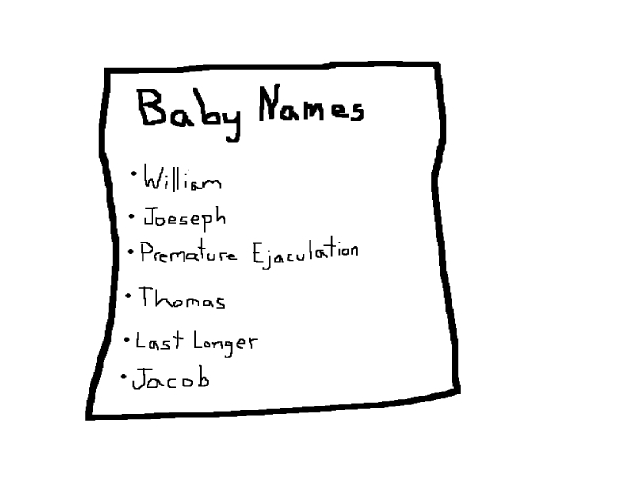 Baby Names
• William
• Joeseph
• Premature Ejaculation
• Thomas
• Last Longer
• Jacob